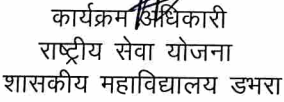 कार्यक्रम अधिकारी
राष्ट्रीय सेवा योजना
शासकीय महाविद्यालय डभरा